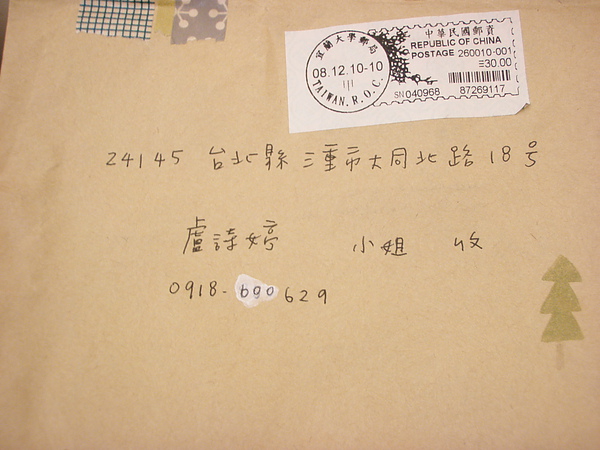 中華民國郵資
REPUBLIC OF CHINA
POSTAGE 260010-001
≡30.00
SN040968 87269117
宜蘭大學郵局
08.12.10-10
TAIWAN. R.O.C.
24145 台北縣三重市大同北路18号
盧詩婷 小姐 收
0918-690629